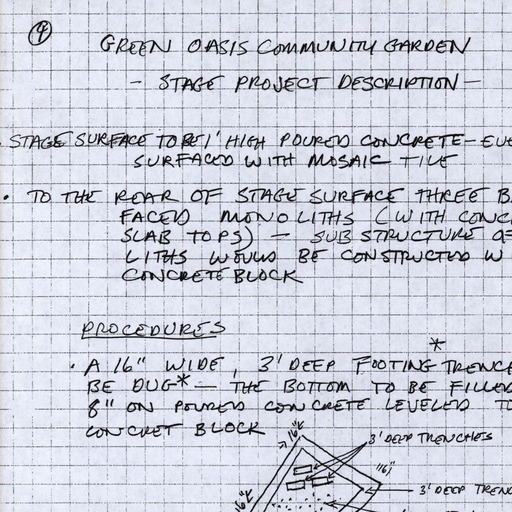 4
GREEN OASIS COMMUNITY GARDEN
- STAGE PROJECT DESCRIPTION -
• STAGE SURFACE TO BE 1' HIGH POURED CONCRETE -
SURFACED WITH MOSAIC TILE
• TO THE REAR OF STAGE SURFACE THREE
FACED MONOLITHS (WITH CONC
SLAB TOPS) - SUBSTRUCTURE OF
LITHS WOULD BE CONSTRUCTED W
CONCRETE BLOCK
PROCEDURES
• A 16" WIDE, 3' DEEP FOOTING * TRENC
BE DUG* - THE BOTTOM TO BE FILLED
8" ON POURED CONCRETE LEVELED TO
CONCRET BLOCK
16"
3' DEEP TRENCHES
16"
3' DEEP TRENC
16"